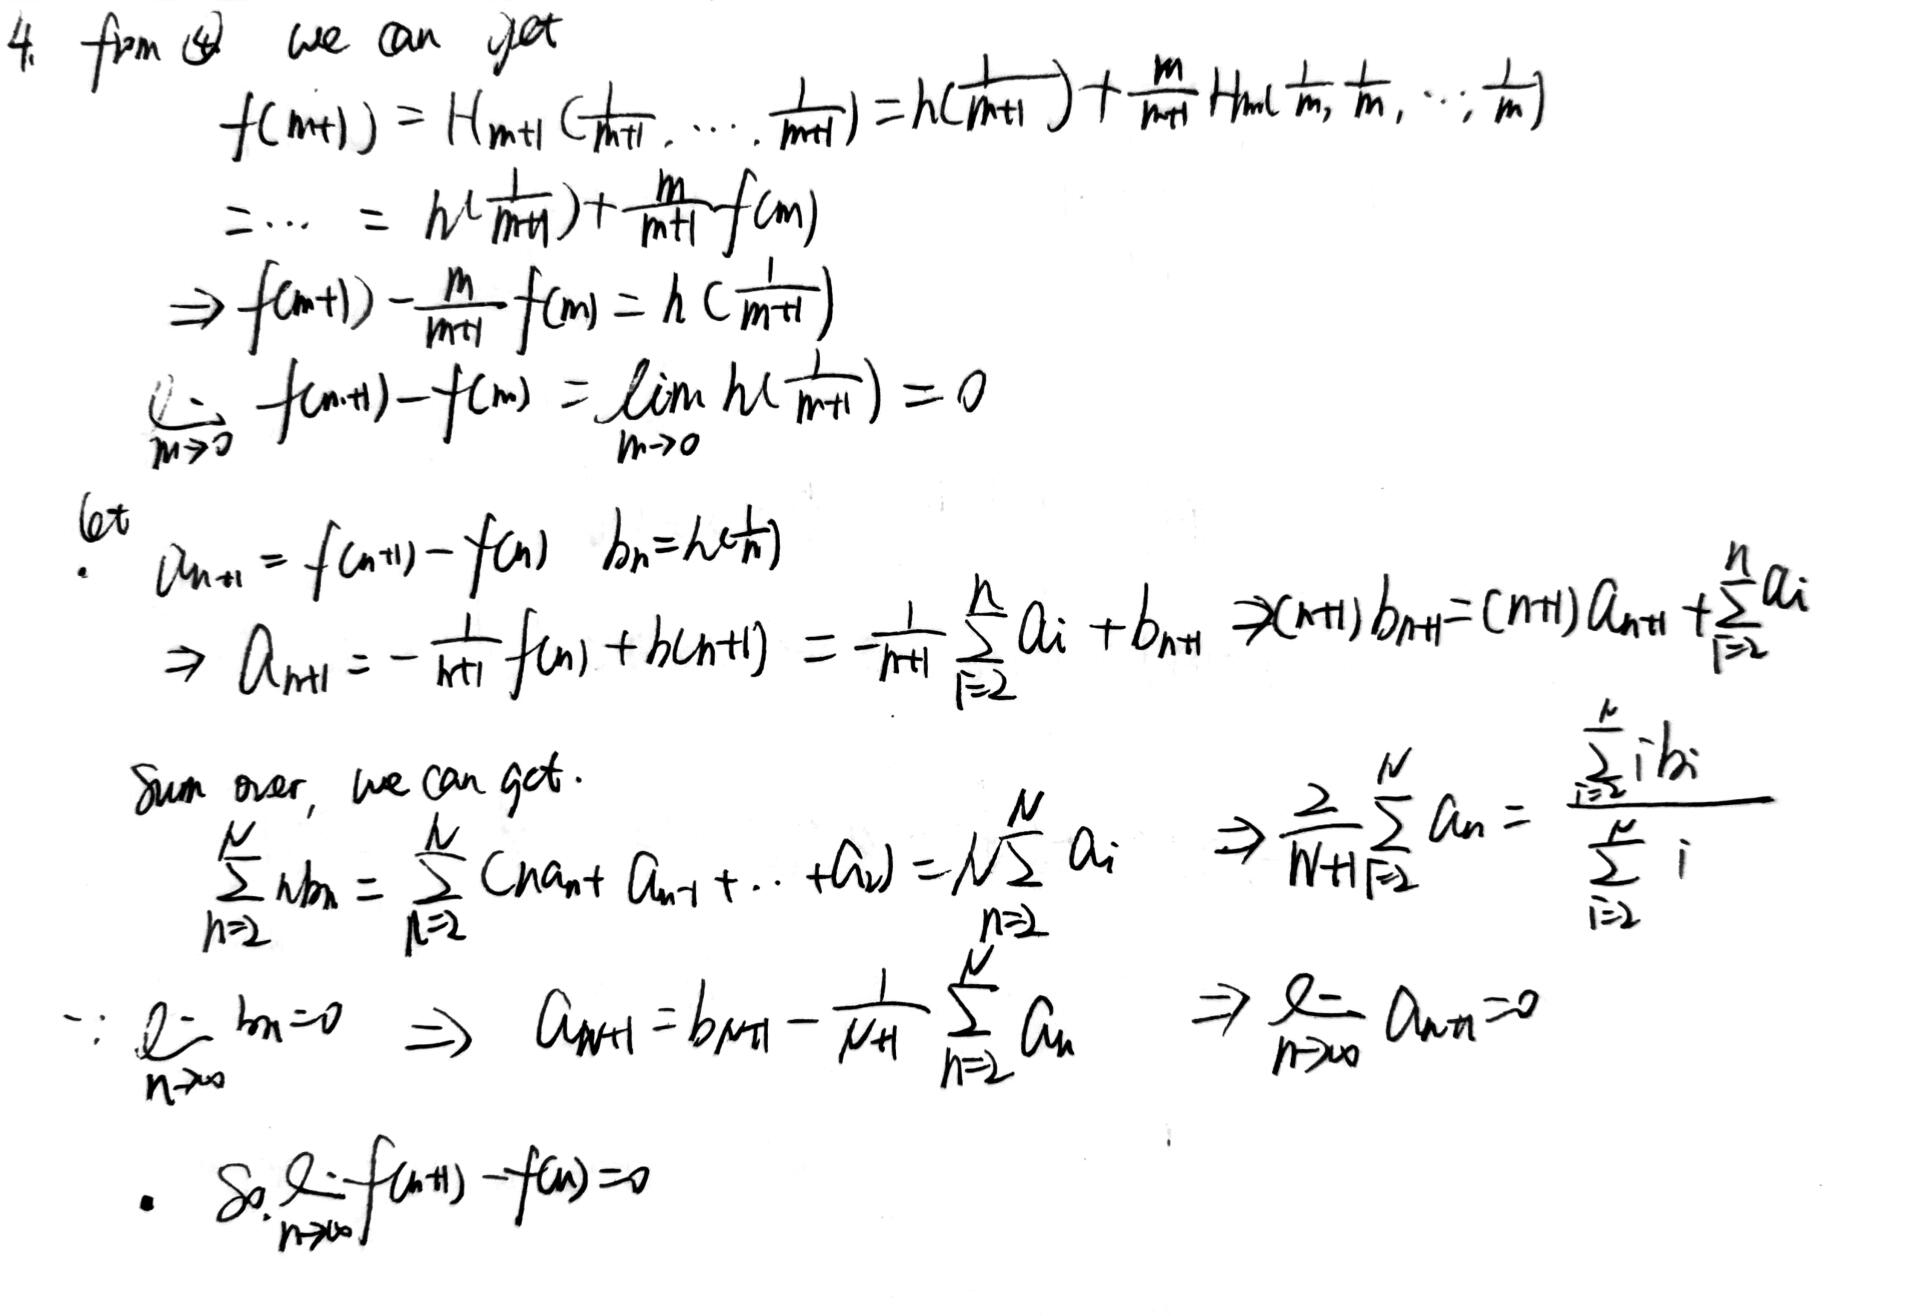 4. from ④ we can get
f(m+1) = H_{m+1}(\frac{1}{m+1}, ..., \frac{1}{m+1}) = h(\frac{1}{m+1}) + \frac{m}{m+1} H_m(\frac{1}{m}, \frac{1}{m}, ..., \frac{1}{m})
= ... = h(\frac{1}{m+1}) + \frac{m}{m+1} f(m)
⇒ f(m+1) - \frac{m}{m+1} f(m) = h(\frac{1}{m+1})
lim_{m→0} f(m+1) - f(m) = lim_{m→0} h(\frac{1}{m+1}) = 0
let
a_{n+1} = f(n+1) - f(n) b_n = h(\frac{1}{n})
⇒ a_{n+1} = -\frac{1}{n+1} f(n) + b(n+1) = -\frac{1}{n+1} \sum_{i=2}^{n} a_i + b_{n+1} ⇒ (n+1) b_{n+1} = (n+1) a_{n+1} + \sum_{i=2}^{n} a_i
Sum over, we can get.
\sum_{n=2}^{N} n b_n = \sum_{n=2}^{N} (n a_n + a_{n-1} + ... + a_2) = N \sum_{n=2}^{N} a_i ⇒ \frac{2}{N+1} \sum_{i=2}^{N} a_n = \frac{\sum_{i=2}^{N} i b_i}{\sum_{i=2}^{N} i}
∵ lim_{n→∞} b_n = 0 ⇒ a_{N+1} = b_{N+1} - \frac{1}{N+1} \sum_{n=2}^{N} a_n ⇒ lim_{n→∞} a_{n+1} = 0
· So. lim_{n→∞} f(n+1) - f(n) = 0